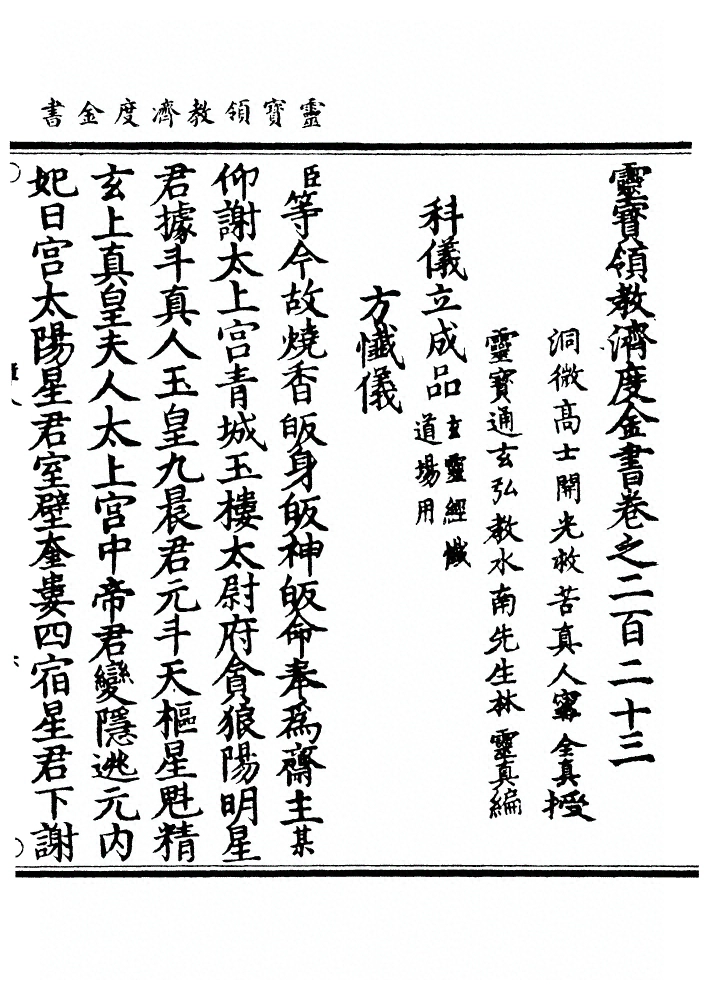 靈寶領教濟度金書
靈寶領教濟度金書卷之二百二十三
洞微高士開光救苦真人甯全真授
靈寶通玄弘教水南先生林靈真編
科儀立成品玄靈經懺道場用
方懺儀
臣等今故燒香皈身皈神皈命奉為齋主某
仰謝太上宮青城玉樓太尉府貪狼陽明星
君據斗真人玉皇九晨君元斗天樞星魁精
玄上真皇夫人太上宮中帝君變隱逃元內
妃日宮太陽星君室壁奎婁四宿星君下謝